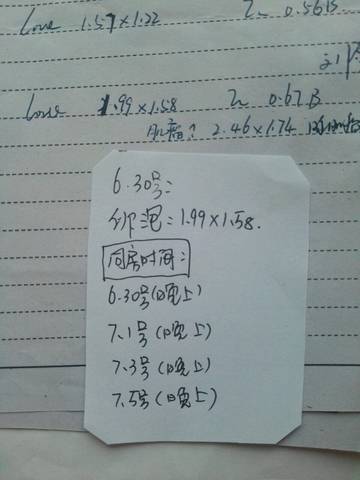 Love 1.57×1.22 Z~ 0.56B
Love 1.99×1.58 Z~ 0.67B
肌瘤? 2.46×1.74
6.30号:
卵泡:1.99×1.58.
同房时间:
6.30号(晚上)
7.1号(晚上)
7.3号(晚上)
7.5号(晚上)